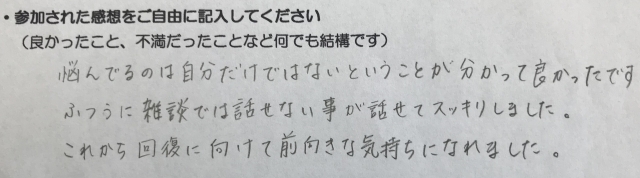 ・参加された感想をご自由に記入してください
（良かったこと、不満だったことなど何でも結構です）
悩んでるのは自分だけではないということが分かって良かったです
ふつうに雑談では話せない事が話せてスッキリしました。
これから回復に向けて前向きな気持ちになれました。